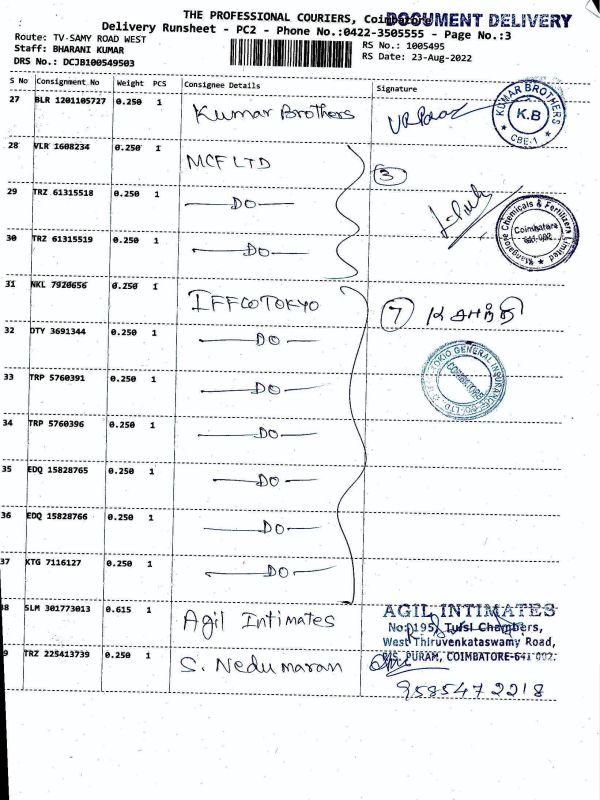 THE PROFESSIONAL COURIERS, Coimbatore
DOCUMENT DELIVERY
Delivery Runsheet - PC2 - Phone No.:0422-3505555 - Page No.:3
Route: TV-SAMY ROAD WEST
RS No.: 1005495
Staff: BHARANI KUMAR
RS Date: 23-Aug-2022
DRS No.: DCJB100549503
S No Consignment No Weight PCS Consignee Details Signature
27 BLR 1201105727 0.250 1 Kumar Brothers
KUMAR BROTHERS
K.B
CBE-1
28 VLR 1608234 0.250 1 MCF LTD
3
29 TRZ 61315518 0.250 1 —DO—
Mangalore Chemicals & Fertilizers Limited
Coimbatore
30 TRZ 61315519 0.250 1 —DO—
31 NKL 7920656 0.250 1 IFFCO TOKYO
7
32 DTY 3691344 0.250 1 —DO—
TOKIO GENERAL INSURANCE CO. LTD.
COIMBATORE
33 TRP 5760391 0.250 1 —DO—
34 TRP 5760396 0.250 1 —DO—
35 EDQ 15828765 0.250 1 —DO—
36 EDQ 15828766 0.250 1 —DO—
37 KTG 7116127 0.250 1 —DO—
38 SLM 301773013 0.615 1 Agil Intimates
AGIL INTIMATES
No:195, Tulsi Chambers,
West Thiruvenkataswamy Road,
9 TRZ 225413739 0.250 1 S. Nedumaran
R.S. PURAM, COIMBATORE-641 002.
9585472218